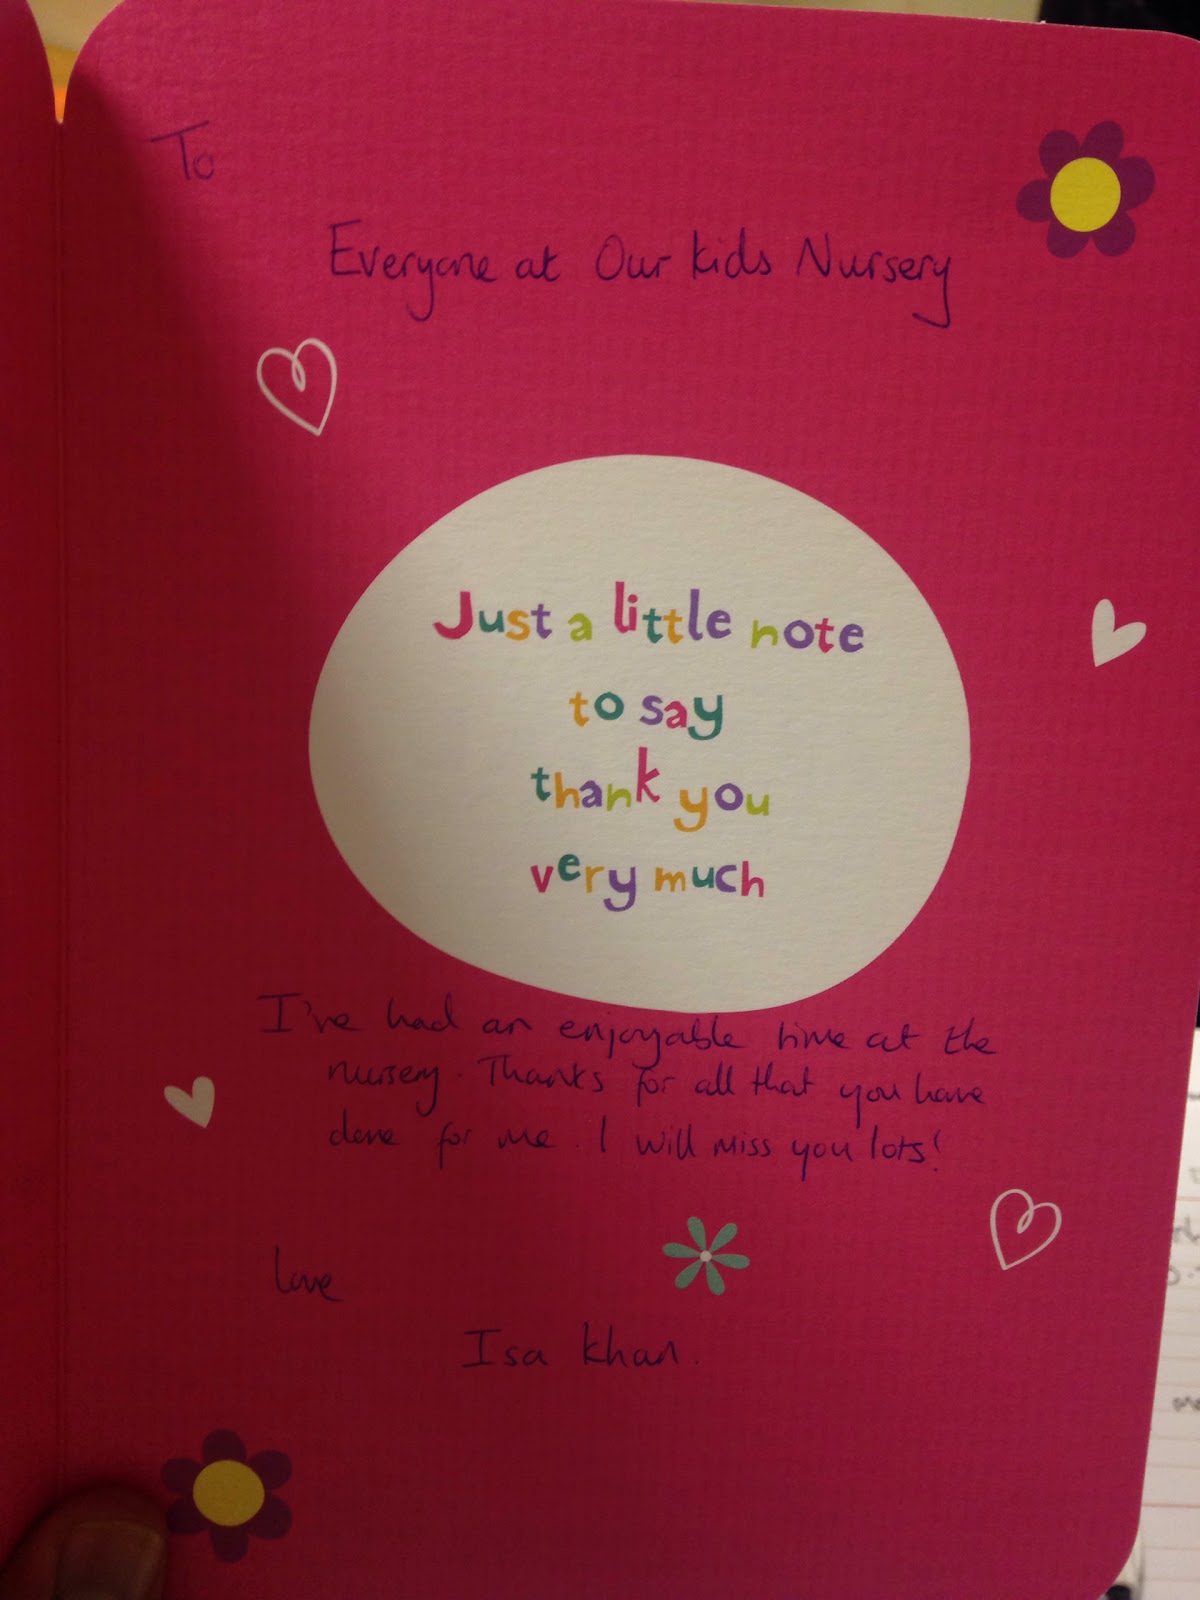 To
Everyone at Our kids Nursery
Just a little note
to say
thank you
very much
I've had an enjoyable time at the
nursery. Thanks for all that you have
done for me. I will miss you lots!
love
Isa Khan.